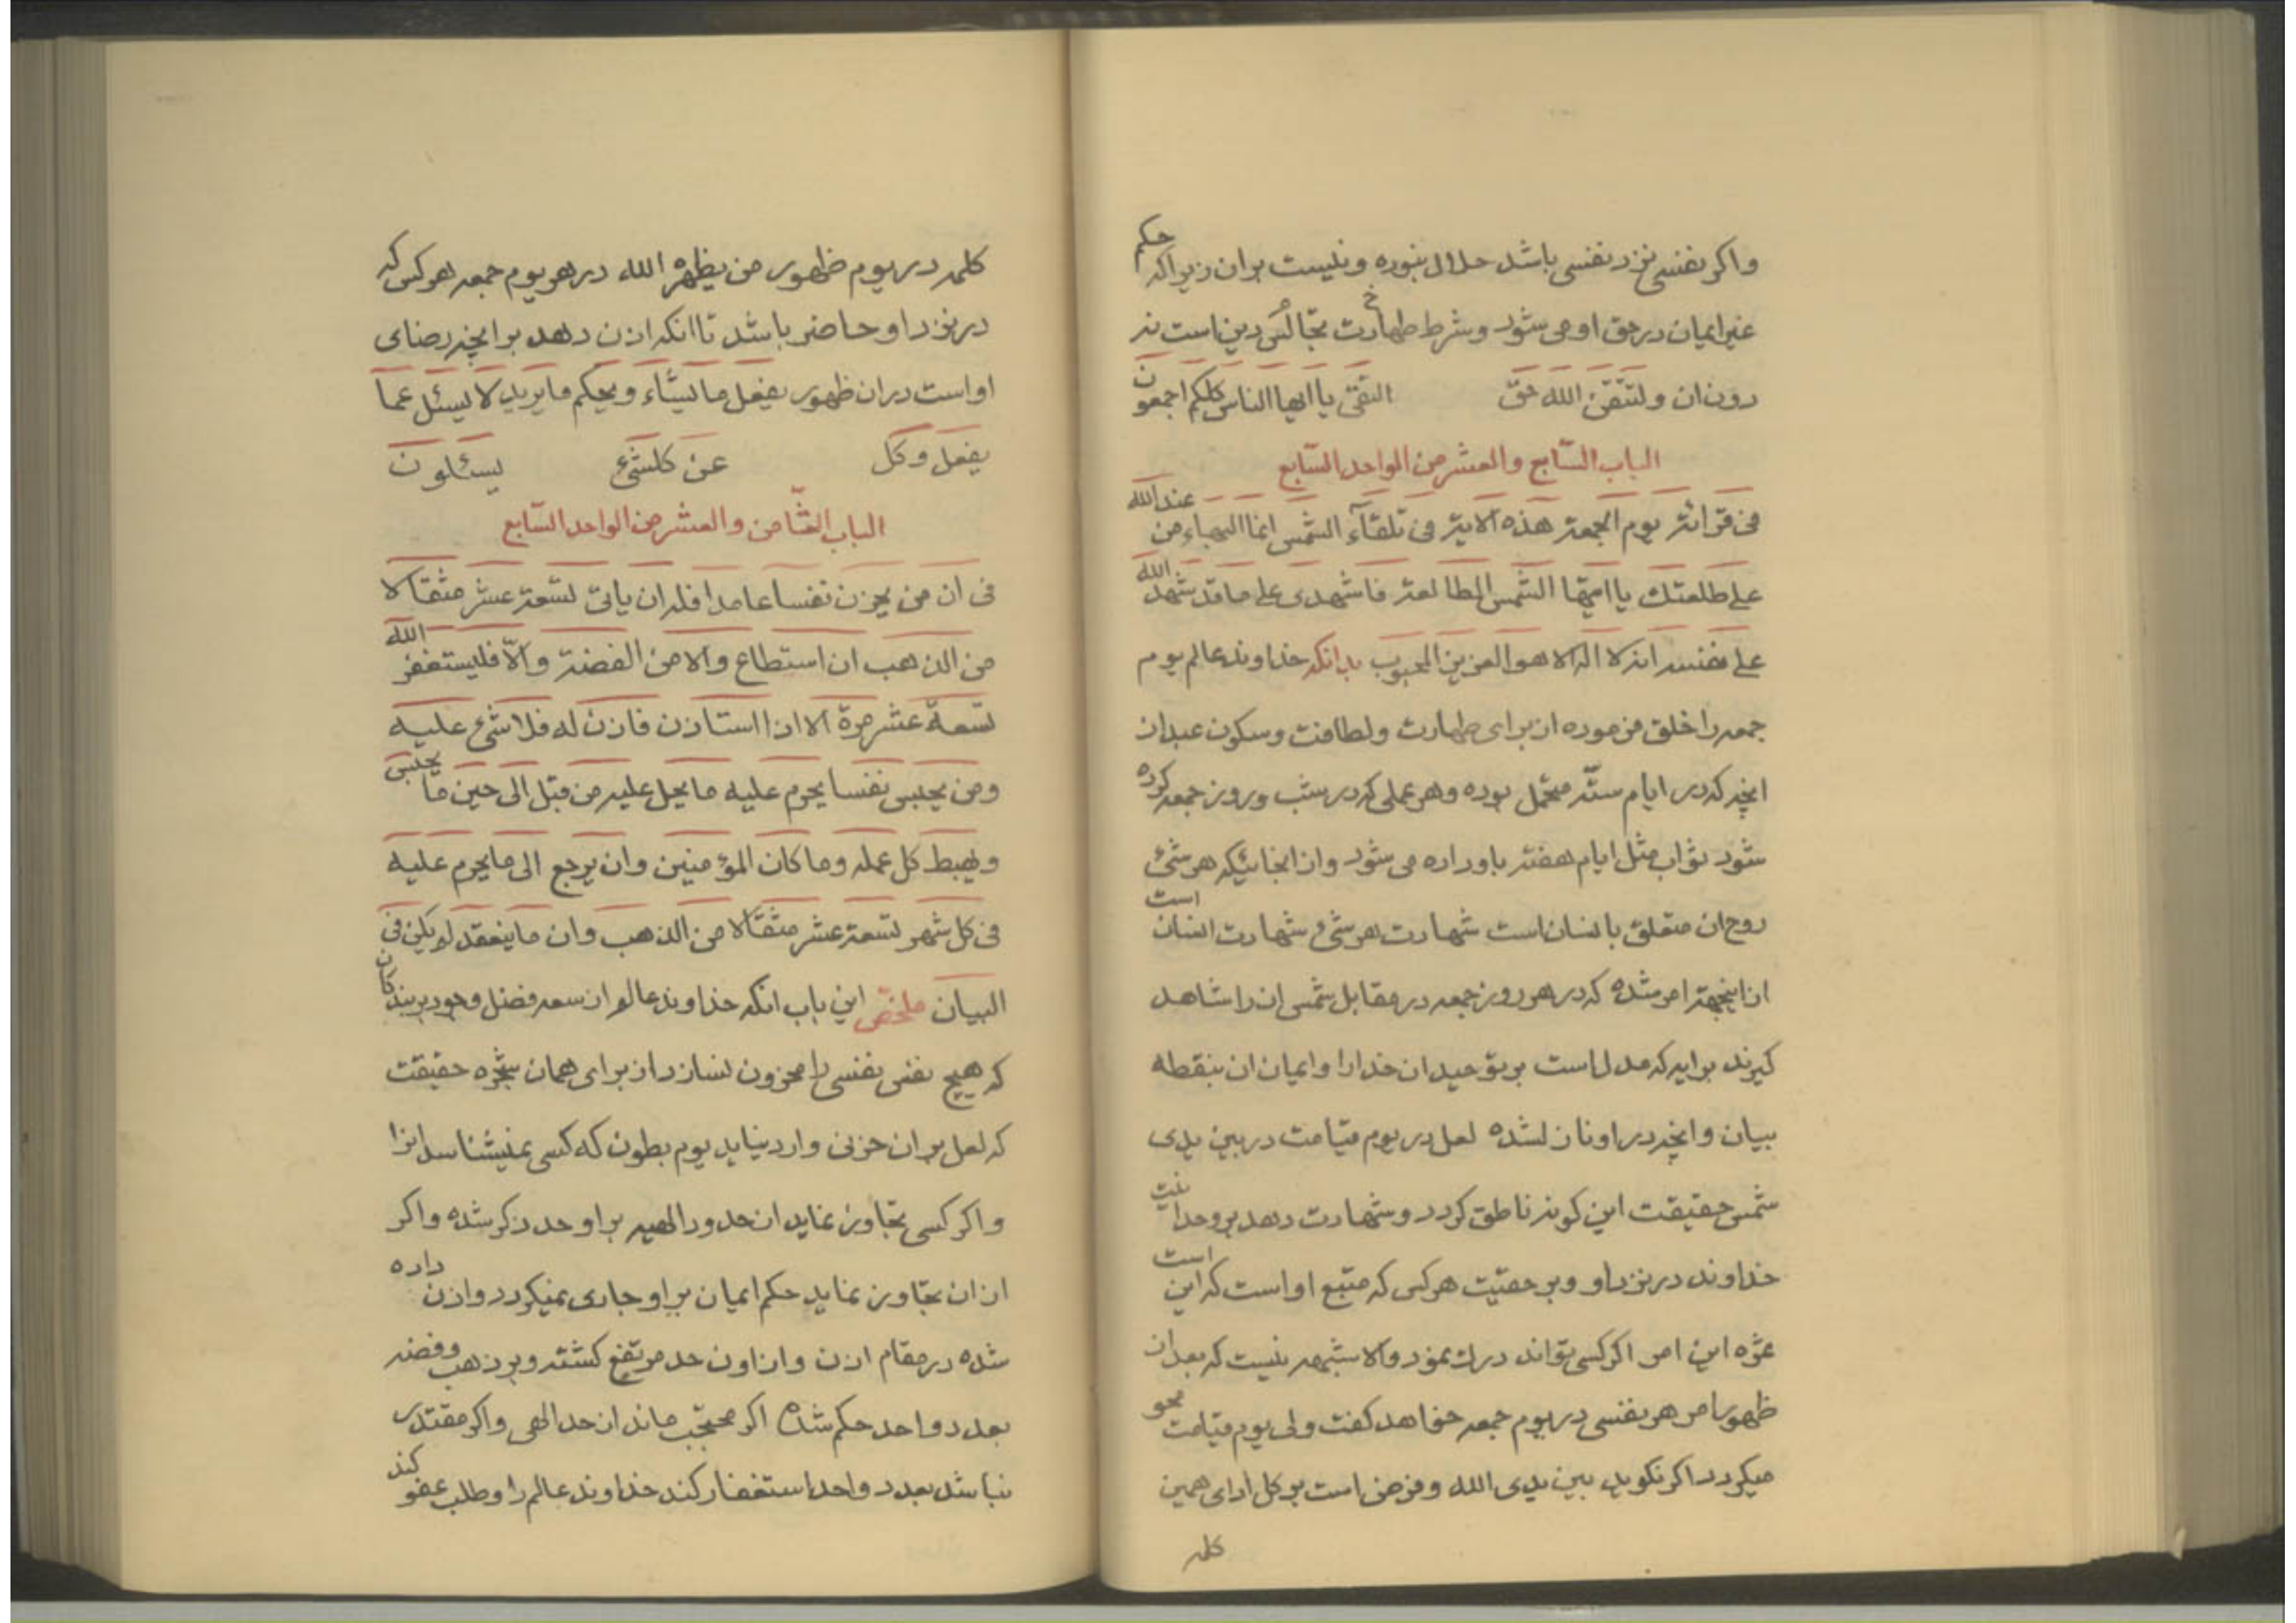 واکر نفسی نزد نفسی باشد حلال نبوده و نیست بران زیراکه حکم
غیر ایمان در حق او می شود و شرط طهارت تجالس دین است نه
دون ان ولتتقن الله حق التقی یا ایها الناس کلکم اجمعون
الباب السّابع والعشر من الواحد السّابع
فی قرائة یوم الجمعة هذه الایة فی تلقآء الشمس انما البهاء من عند الله
علی طلعتک یا ایتها الشمس الطالعة فاشهدی علی ما قد شهد الله
علی نفسه انه لا اله الا هو العزیز المحبوب بدانکه خداوند عالم یوم
جمعه را خلق فرموده از برای طهارت ولطافت وسکون عبد از
انچه که در ایام ستّه متحمل بوده وهر عملی که در شب وروز جمعه کرده
شود ثواب مثل ایام هفته باو داده می شود واز انجائیکه هر شئ
روح ان متعلق بانسان است شهادت هر شئ شهادت انسان است
از اینجهة امر شده که در هر روز جمعه در مقابل شمس ان را شاهد
کیرند برایه که مدل است بر توحید ان خدا را وایمان ان بنقطه
بیان وانچه در او نازل شده لعل در یوم قیامت در بین یدی
شمس حقیقت این کونه ناطق کردد وشهادت دهد بر وحدانیت
خداوند در نزد او وبر حقیّت هر کس که متبع او است که این است
ثمره این امر اکر کسی تواند درک نمود والا شبهه نیست که بعد از
ظهور امر هر نفسی در یوم جمعه خواهد کفت ولی یوم قیامت محو
میکردد اکر نکوید بین یدی الله وفرض است بر کل ادای همین
کلمه
کلمه در یوم ظهور من یظهره الله در هر یوم جمعه هر کس که
در نزد او حاضر باشد تا انکه اذن دهد بر انچه رضای
او است در ان ظهور یفعل ما یشاء ویحکم ما یرید لا یسئل عما
یفعل وکل عن کلشئ یسئلون
الباب الثّامن والعشر من الواحد السّابع
فی ان من یحزن نفسا عامدا فله ان یاتی تسعة عشر مثقالا
من الذهب ان استطاع والا من الفضة والّا فلیستغفر الله
تسعة عشر مرة الا اذا استاذن فاذن له فلا شئ علیه
ومن یحبس نفسا یحرم علیه ما یحل علیه من قبل الی حین ما یحبس
ویحبط کل عمله وما کان المؤمنین وان یرجع الی ما یحرم علیه
فی کل شهر تسعة عشر مثقالا من الذهب وان ما ینعقد لو یکن فی
البیان ملخص این باب انکه خداوند عالم از سعه فضل وجود بر بندکان
که هیچ نفسی نفسی را محزون نسازد از برای همان شجره حقیقت
که لعل بر ان حزنی وارد نیاید یوم بطون که کسی نمیشناسد انرا
واکر کسی تجاوز نماید از حدود الهیه بر او حد ذکر شده واکر
از ان تجاوز نماید حکم ایمان بر او جاری نمیکردد واذن داده
شده در مقام اذن واز اون حد مرتفع کشته وبر ذهب وفضه
بعدد واحد حکم شده اکر محتجب ماند از حد الهی واکر مقتدر
نباشد بعدد واحد استغفار کند خداوند عالم را وطلب عفو کند